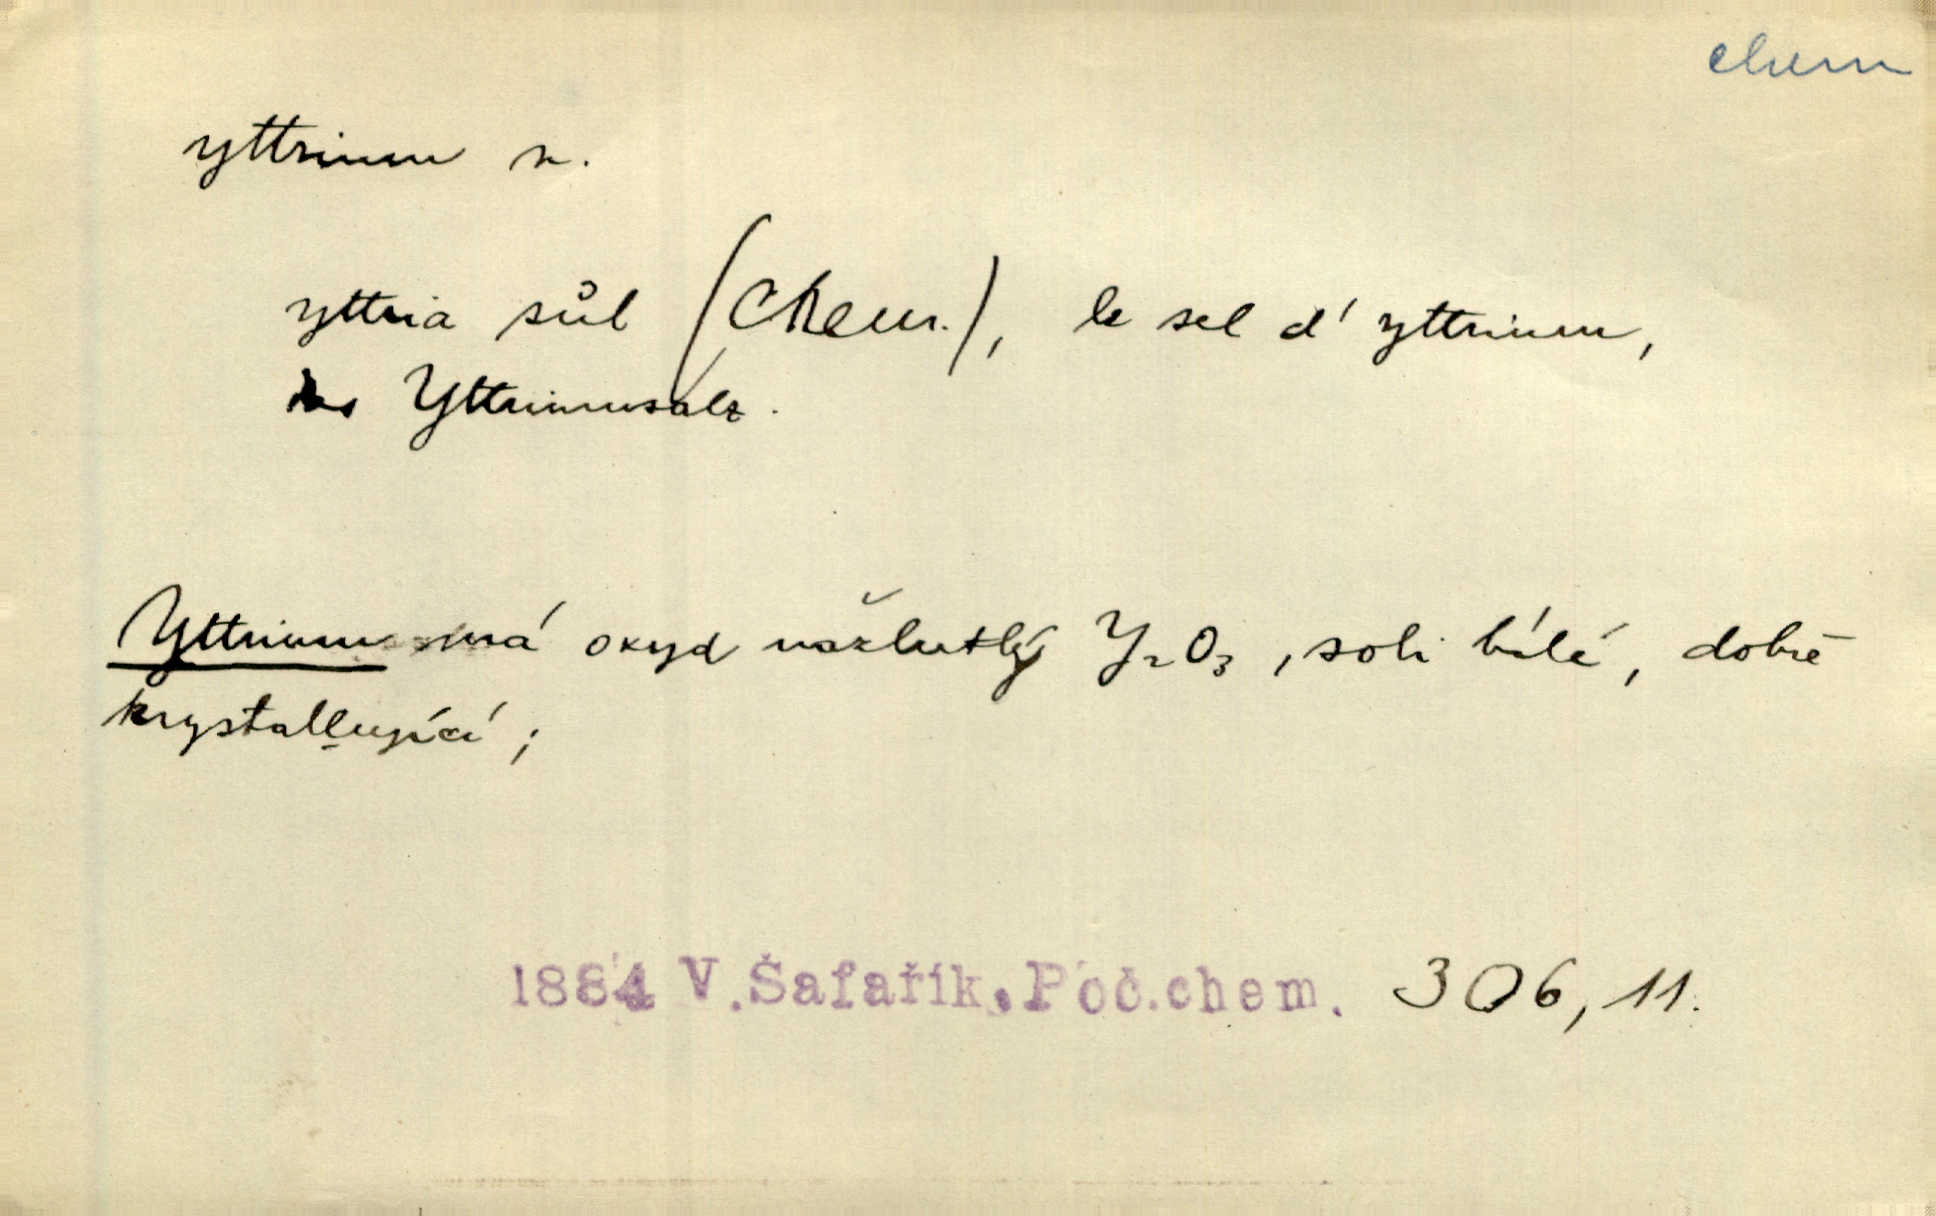 chem
yttrium n.
yttria sůl (Chem.), le sel d' yttrium,
das Yttriumsalz.
Yttrium má oxyd nažlutlý Y₂O₃, soli bílé, dobře
krystallující;
1884 V. Šafařík. Poč.chem. 306, 11.